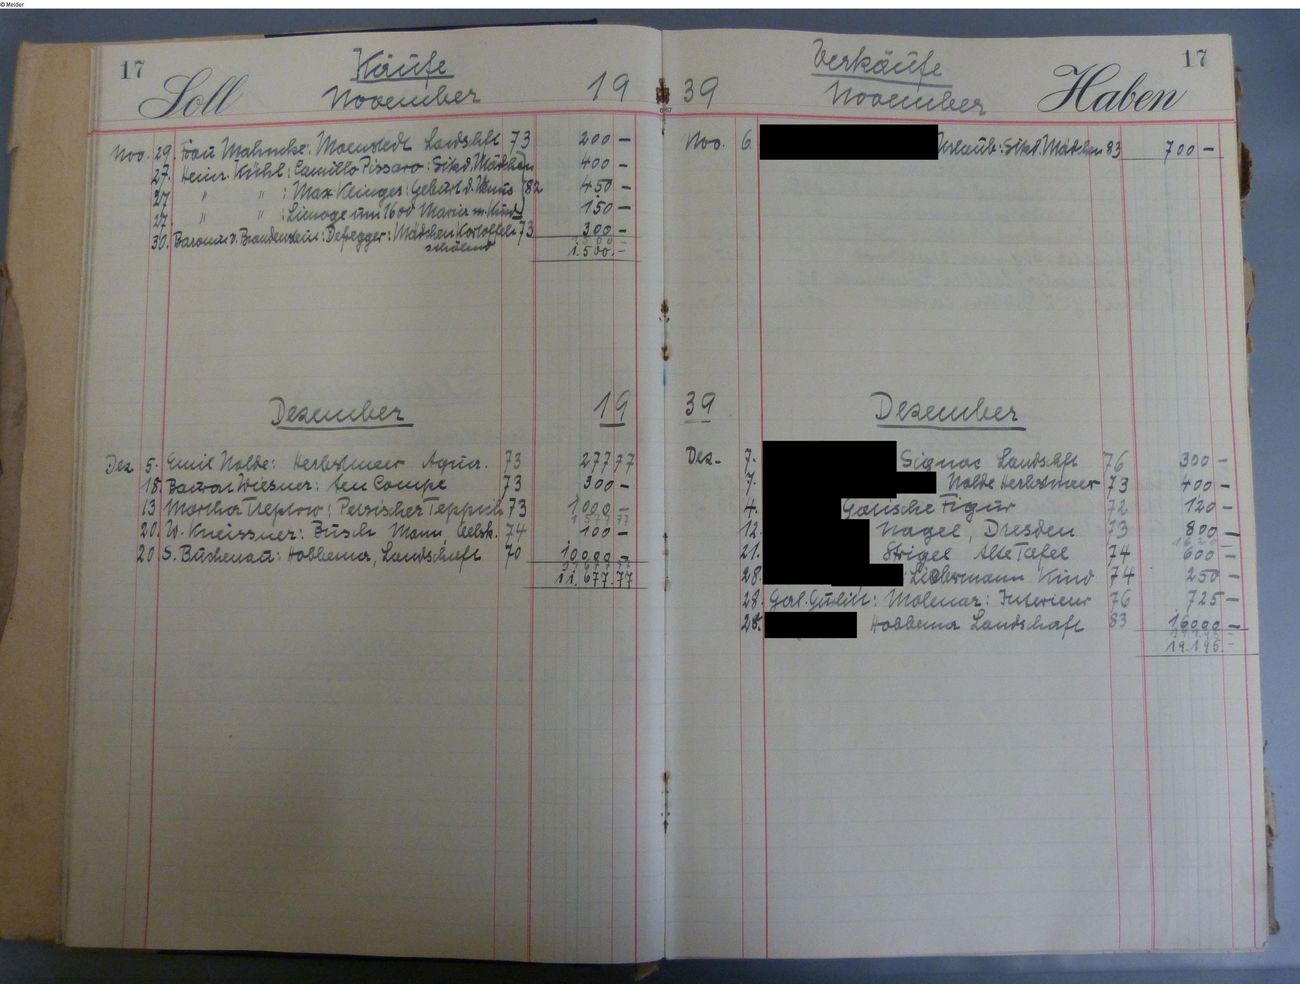 © Melder
17 Soll Käufe November 19
Nov. 29. Frau Mahncke: Landschft 73 200 –
27. Heinr. Kühl: Camillo Pissaro: Sitzd. Mädchen 400 –
27 " " : Max Klinger: Geburt d. Venus 82 450 –
27 " " : Limoge um 1600 Maria m. Kind 150 –
30. v. Brandenstein: Defregger: Mädchen Kartoffeln 73 300 –
schälend
1.500.–
Dezember 19
Dez 5. Emil Nolde: Herbstmeer Aqua. 73 277 77
18. Baron Wiesner: ten Compe 73 300 –
13 Martha Treptow: Persischer Teppich 73 1000 –
20. W. Kneissner: Busch Mann, 74 100 –
20 S. Buchenau: Hobbema, Landschaft 70 10000 –
11.677.77
39 Verkäufe November Haben 17
Nov. 6. Urlaub: Sitzd. Mädchen 83 700 –
39 Dezember
Dez. 7. Signac Landschft 76 300 –
7. Nolde Herbstmeer 73 400 –
4. Gotische Figur 72 120 –
12. Nagel, Dresden 73 800 –
21. Strigel Alte Tafel 74 600 –
28. Liebermann Kind 74 250 –
28. Gurlitt: Molenar: Interieur 76 725 –
28. Hobbema Landschaft 83 16000 –
19.195.–